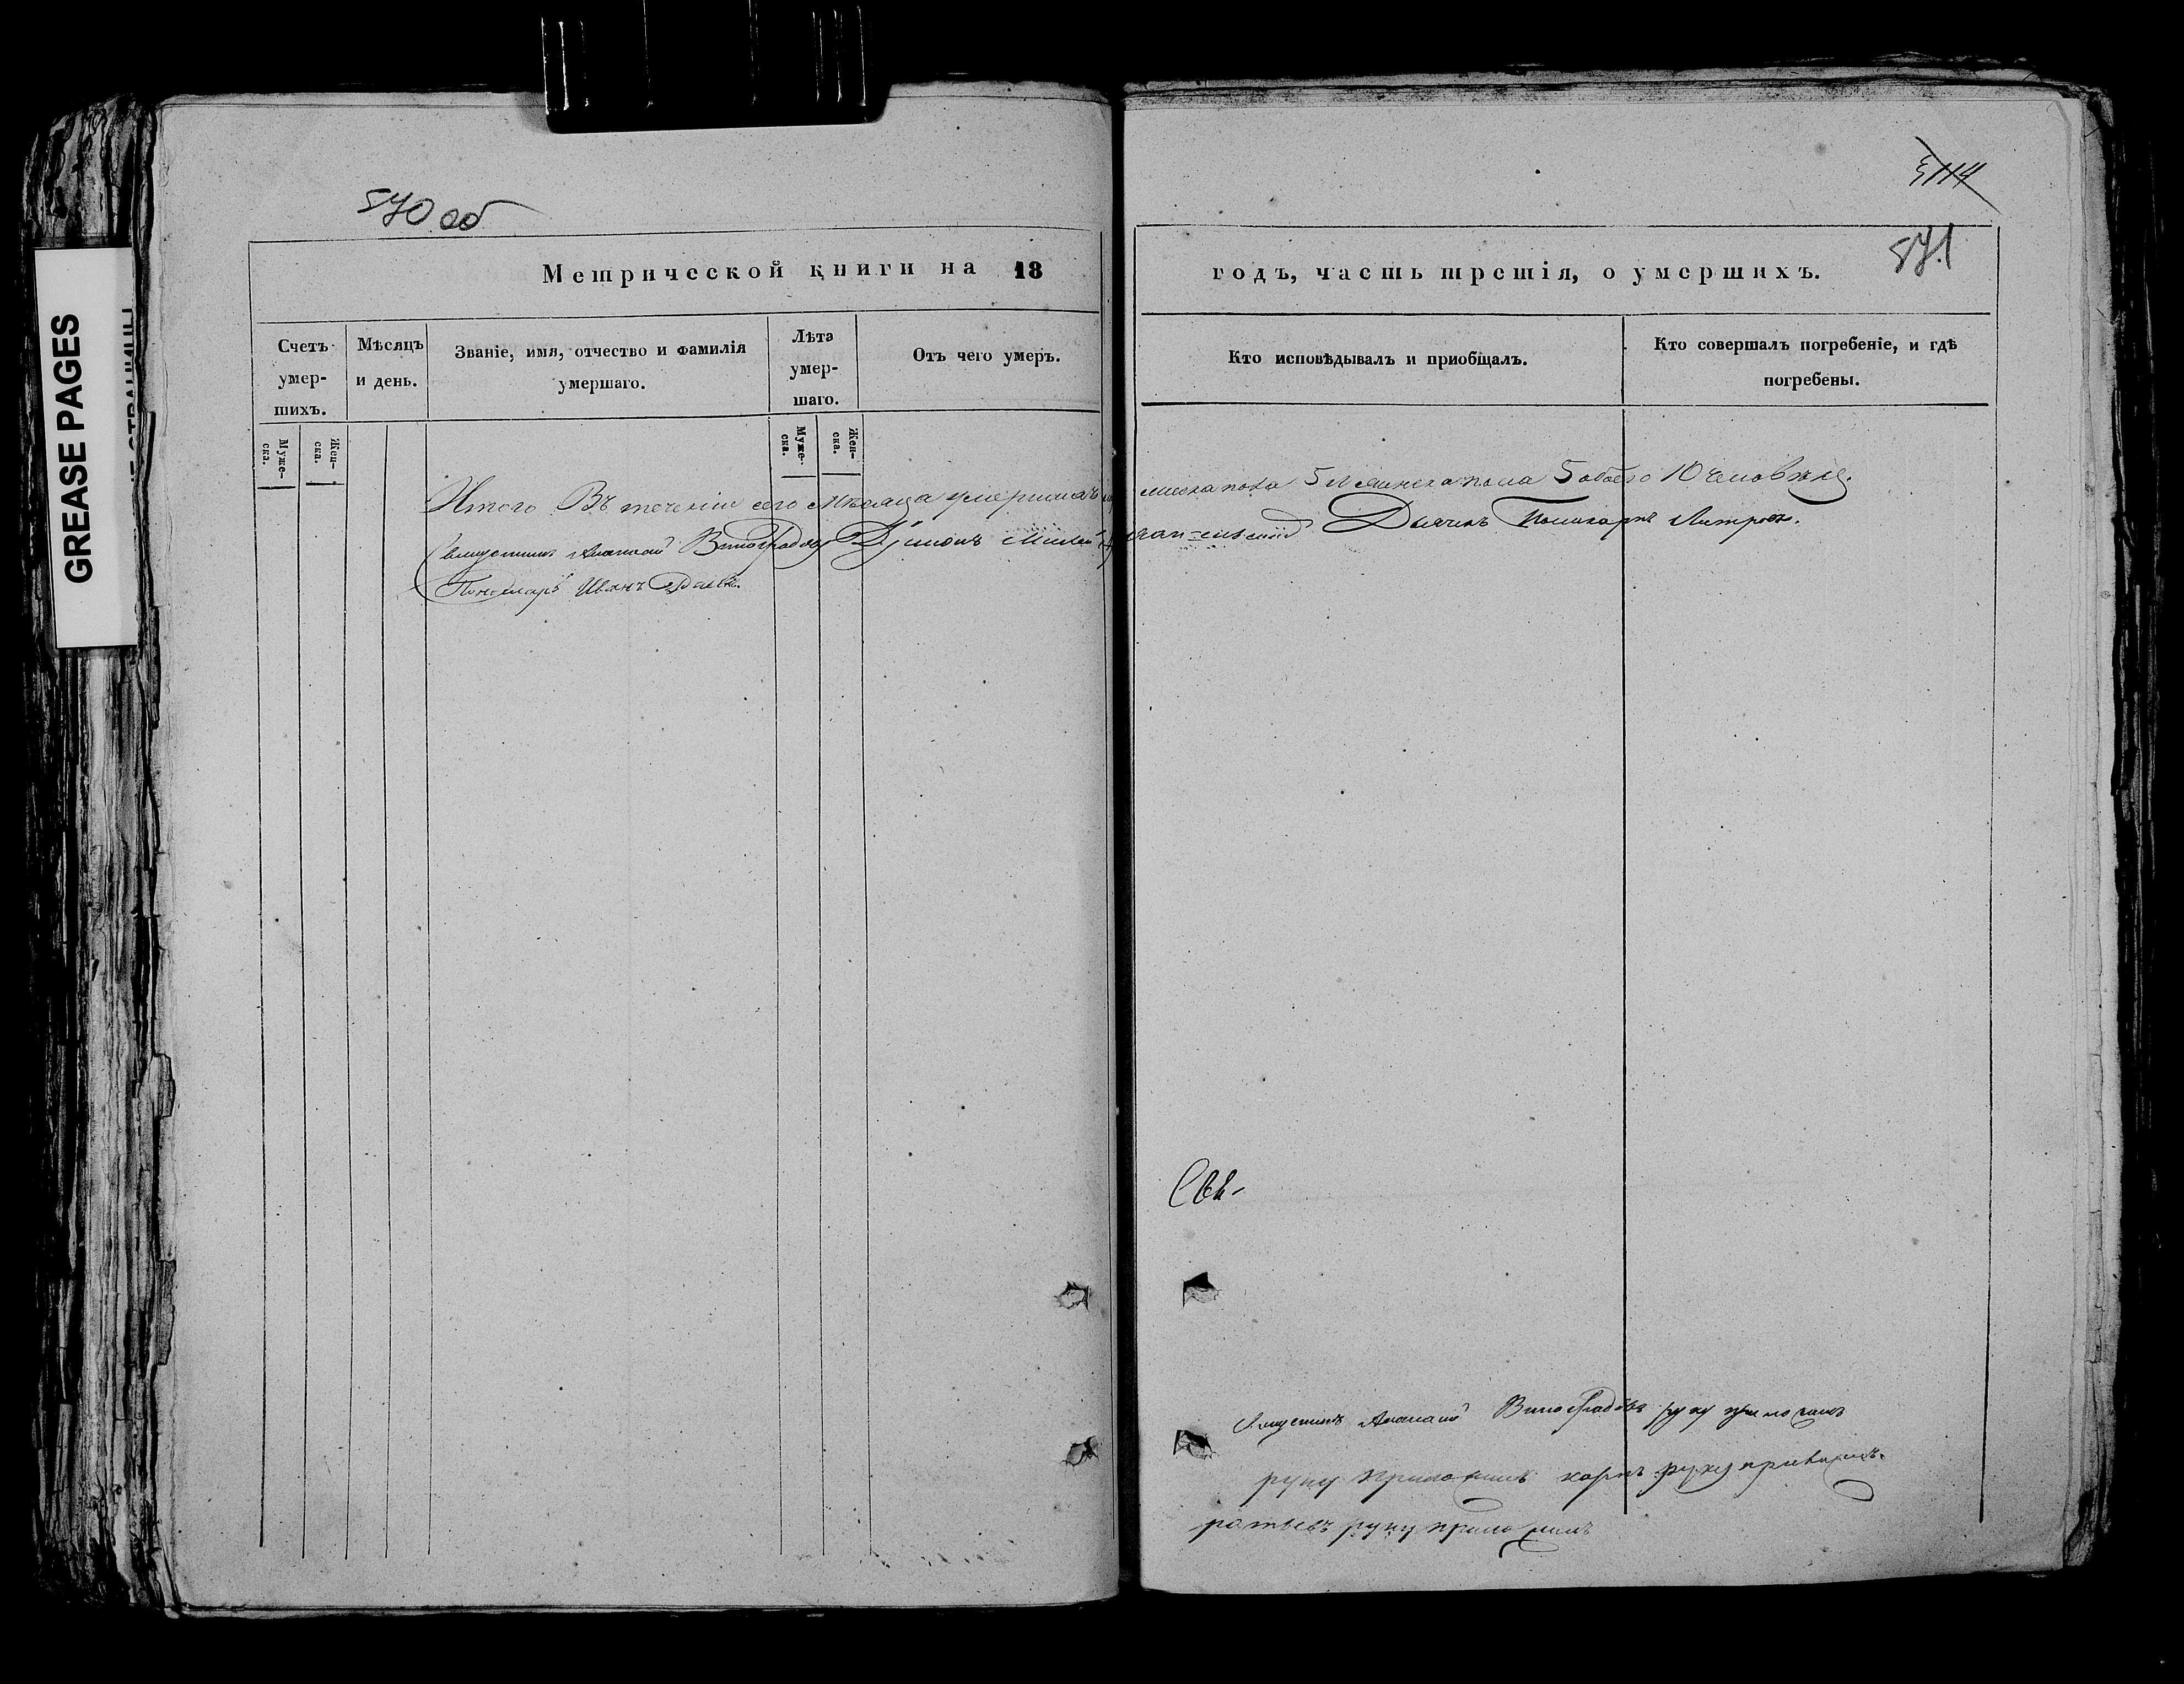 GREASE PAGES
570 об
Метрической книги на 18
Счетъ умер-шихъ.
Мѣсяцъ и день.
Званіе, имя, отчество и фамилія умершаго.
Лѣта умер-шаго.
Отъ чего умеръ.
Муже-ска.
Жен-ска.
Муже-ска.
Жен-ска.
Итого Въ теченіи сего Мѣсяца умершихъ
Священникъ Виноградовъ
Пономарь Иванъ
5114
571
годъ, часть третія, о умершихъ.
Кто исповѣдывалъ и приобщалъ.
Кто совершалъ погребеніе, и гдѣ погребены.
пола 5 Женска пола 5 обоего 10 Человѣкъ.
Дьячекъ Поликарпъ
Свя-
Священникъ Виноградовъ руку приложилъ
руку приложилъ руку приложилъ.
руку приложилъ